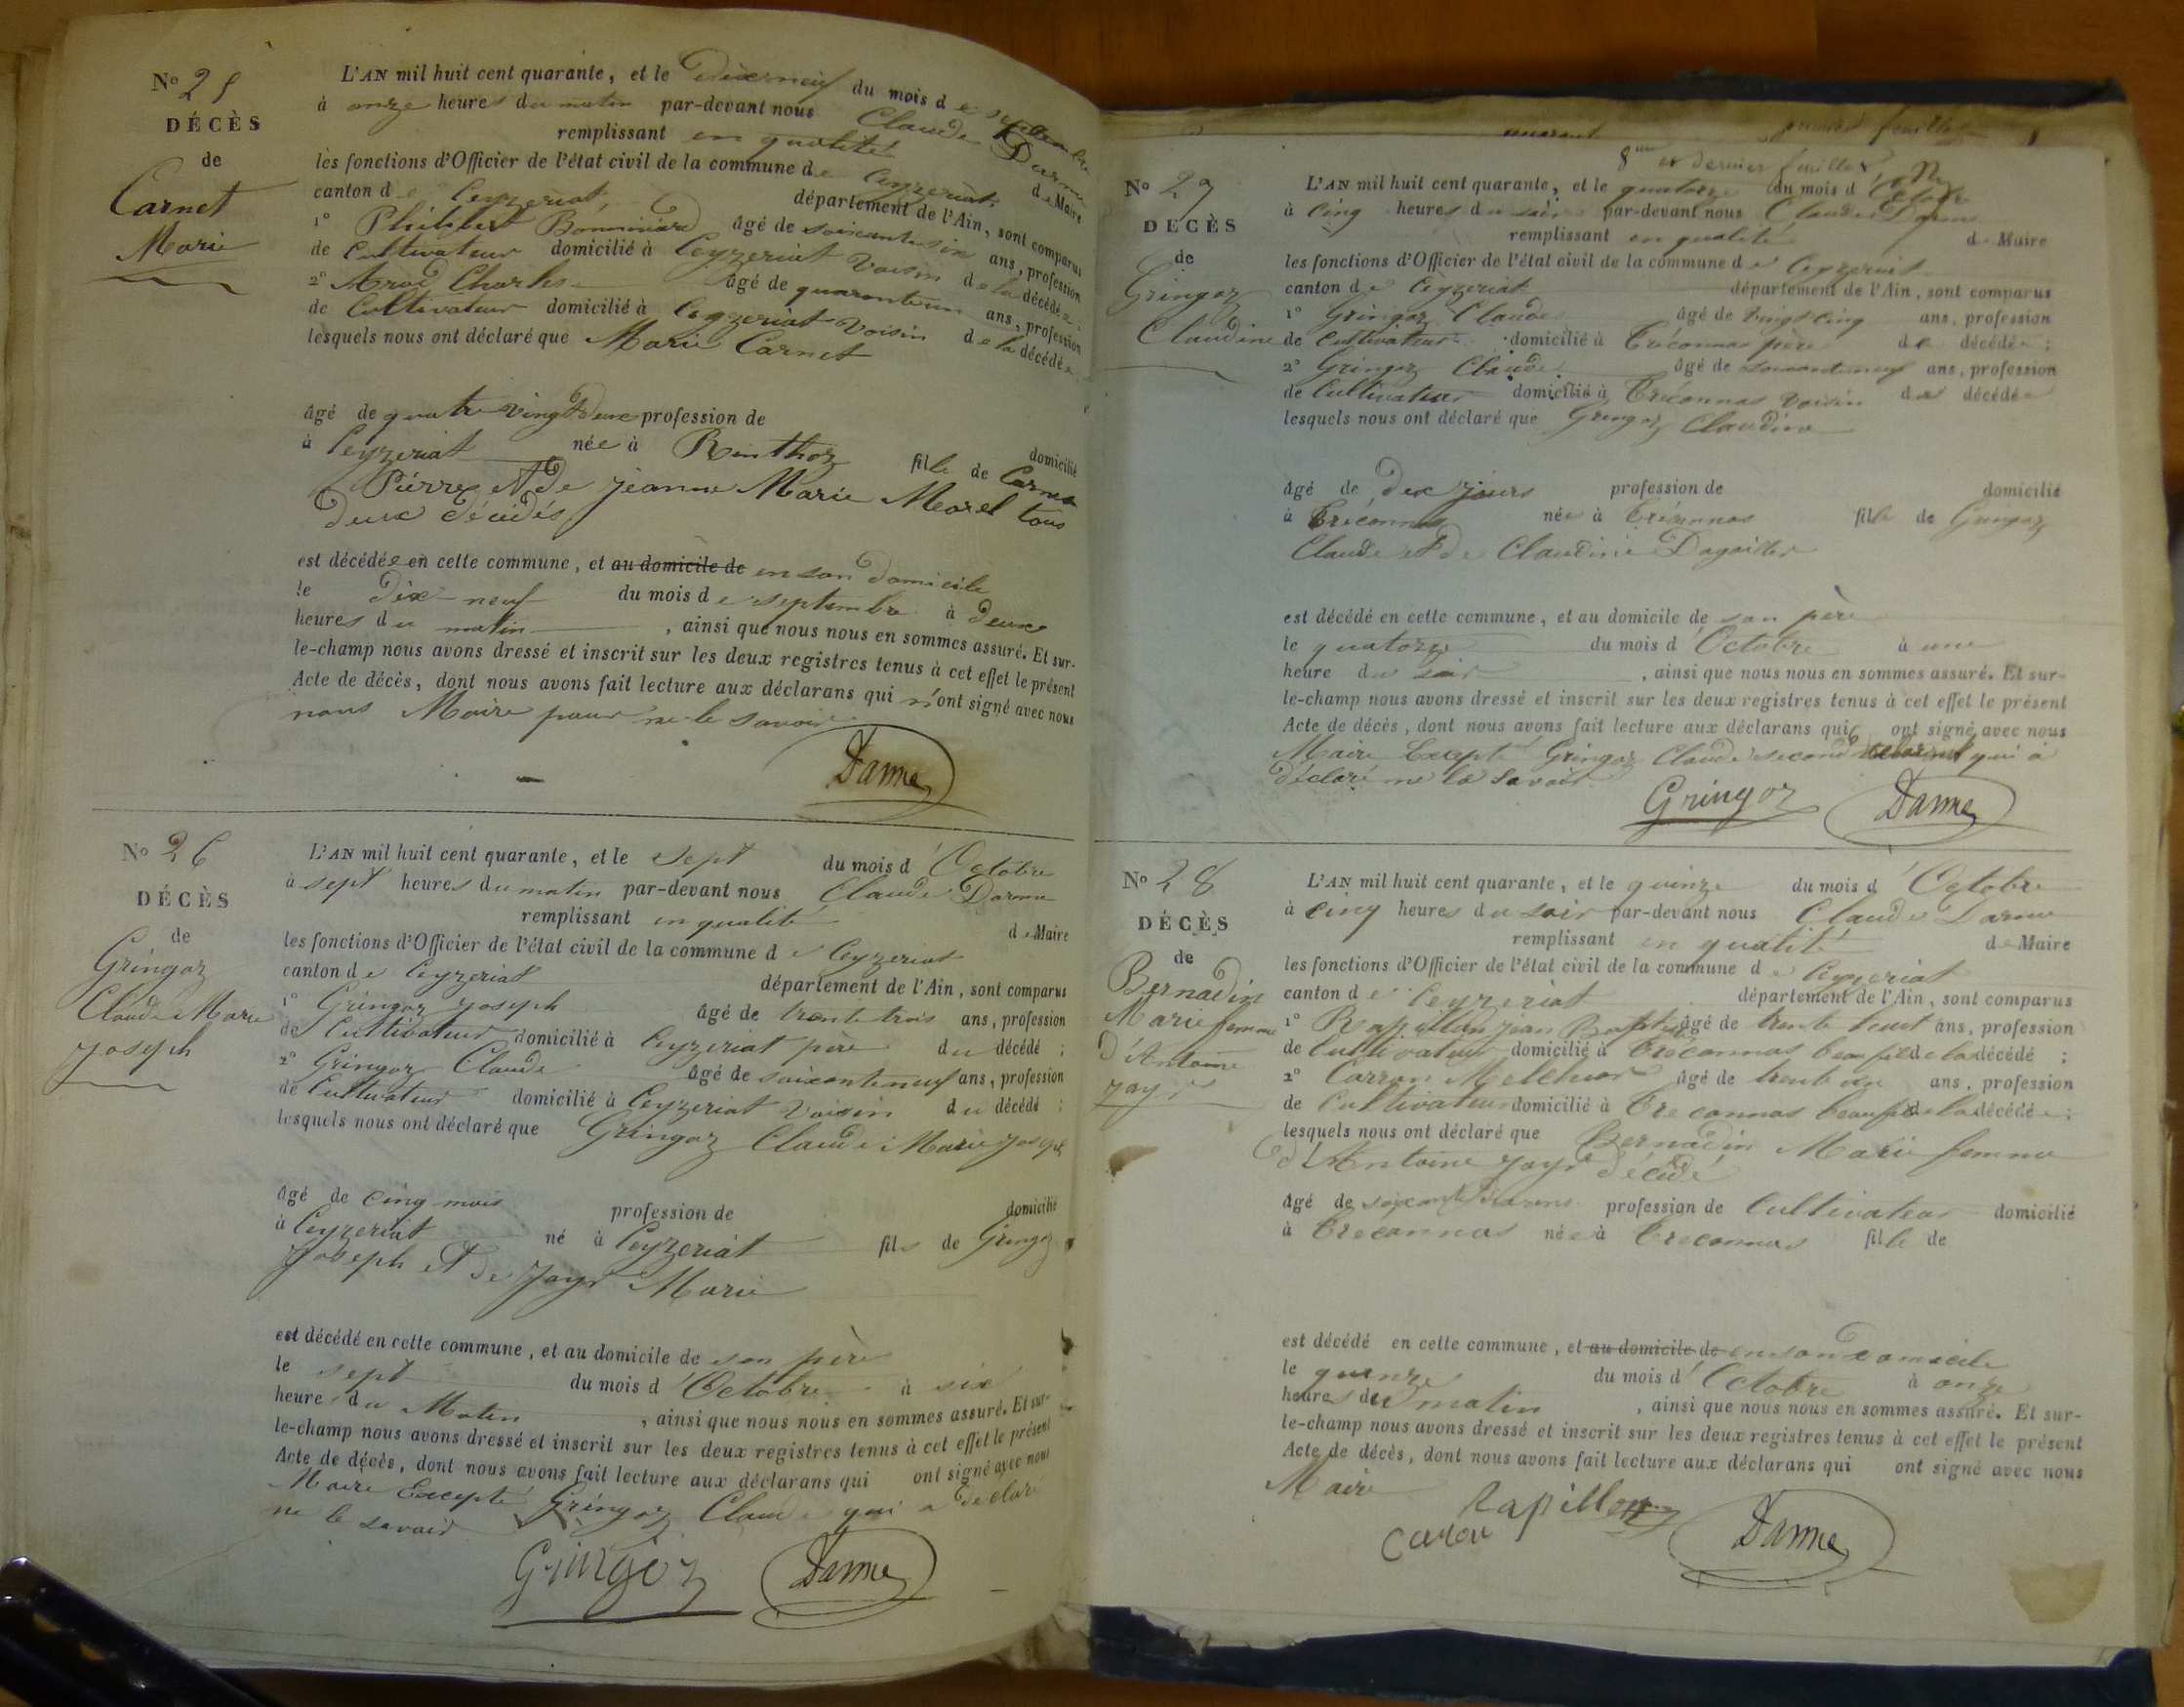 N° 25
DÉCÈS
de
Carnet
Marie
L'AN mil huit cent quarante, et le dixneuf du mois de septembre
à onze heures du matin par-devant nous Claude Darme
remplissant en qualité de Maire
les fonctions d'Officier de l'état civil de la commune de Ceyzeriat
canton de Ceyzeriat, département de l'Ain, sont comparus
1° Philibert Bonnivard âgé de soixante six ans, profession
de Cultivateur domicilié à Ceyzeriat voisin de la décédée;
2° Charles âgé de quarante un ans, profession
de Cultivateur domicilié à Ceyzeriat voisin de la décédée
lesquels nous ont déclaré que Marie Carnet
âgé de quatre vingt deux profession de domicilié
à Ceyzeriat née à fille de Carnet
Pierre et de jeanne Marie Morel tous
deux décédés
est décédée en cette commune, et au domicile de en son domicile
le dix-neuf du mois de septembre à deux
heures du matin, ainsi que nous nous en sommes assuré. Et sur-
le-champ nous avons dressé et inscrit sur les deux registres tenus à cet effet le présent
Acte de décès, dont nous avons fait lecture aux déclarans qui n'ont signé avec nous
nous Maire pour ne le savoir
Darme
N° 26
DÉCÈS
de
Gringoz
Claude Marie
joseph
L'AN mil huit cent quarante, et le sept du mois d'Octobre
à sept heures du matin par-devant nous Claude Darme
remplissant en qualité de Maire
les fonctions d'Officier de l'état civil de la commune de Ceyzeriat
canton de Ceyzeriat département de l'Ain, sont comparus
1° Gringoz joseph âgé de trente trois ans, profession
de Cultivateur domicilié à Ceyzeriat père du décédé;
2° Gringoz Claude âgé de soixanteneuf ans, profession
de Cultivateur domicilié à Ceyzeriat voisin du décédé;
lesquels nous ont déclaré que Gringoz Claude Marie joseph
âgé de cinq mois profession de domicilié
à Ceyzeriat né à Ceyzeriat fils de Gringoz
joseph et de jayr Marie
est décédé en cette commune, et au domicile de son père
le sept du mois d'Octobre à six
heures du Matin, ainsi que nous nous en sommes assuré. Et sur-
le-champ nous avons dressé et inscrit sur les deux registres tenus à cet effet le présent
Acte de décès, dont nous avons fait lecture aux déclarans qui ont signé avec nous
Maire Excepté Gringoz Claude qui a déclaré
ne le savoir
Gringoz Darme
8me et dernier feuillet
N° 27
DÉCÈS
de
Gringoz
Claudine
L'AN mil huit cent quarante, et le quatorze du mois d'Octobre
à cinq heures du soir par-devant nous Claude Darme
remplissant en qualité de Maire
les fonctions d'Officier de l'état civil de la commune de Ceyzeriat
canton de Ceyzeriat département de l'Ain, sont comparus
1° Gringoz Claude âgé de vingt cinq ans, profession
de Cultivateur domicilié à Tréconnas père de décédée;
2° Gringoz Claude âgé de soixanteneuf ans, profession
de Cultivateur domicilié à Tréconnas voisin de décédée
lesquels nous ont déclaré que Gringoz Claudine
âgé de dix jours profession de domicilié
à Tréconnas née à Tréconnas fille de Gringoz
Claude et de Claudine
est décédé en cette commune, et au domicile de son père
le quatorze du mois d'Octobre à une
heure du soir, ainsi que nous nous en sommes assuré. Et sur-
le-champ nous avons dressé et inscrit sur les deux registres tenus à cet effet le présent
Acte de décès, dont nous avons fait lecture aux déclarans qui ont signé avec nous
Maire Excepté Gringoz Claude second déclarant qui a
déclaré ne le savoir
Gringoz Darme
N° 28
DÉCÈS
de
Bernadin
Marie femme
d'Antoine
jayr
L'AN mil huit cent quarante, et le quinze du mois d'Octobre
à cinq heures du soir par-devant nous Claude Darme
remplissant en qualité de Maire
les fonctions d'Officier de l'état civil de la commune de Ceyzeriat
canton de Ceyzeriat département de l'Ain, sont comparus
1° Rapillon jean Baptiste âgé de trente huit ans, profession
de Cultivateur domicilié à Tréconnas beau fils de la décédé;
2° Carron Melchior âgé de trente ans, profession
de Cultivateur domicilié à Treconnas beau fils de la décédée;
lesquels nous ont déclaré que Bernadin Marie femme
d'Antoine jayr décédé
âgé de profession de Cultivateur domicilié
à Treconnas née à Treconnas fille de
est décédé en cette commune, et au domicile de en son domicile
le quinze du mois d'Octobre à onze
heures du matin, ainsi que nous nous en sommes assuré. Et sur-
le-champ nous avons dressé et inscrit sur les deux registres tenus à cet effet le présent
Acte de décès, dont nous avons fait lecture aux déclarans qui ont signé avec nous
Maire
Rapillon
Caron Darme